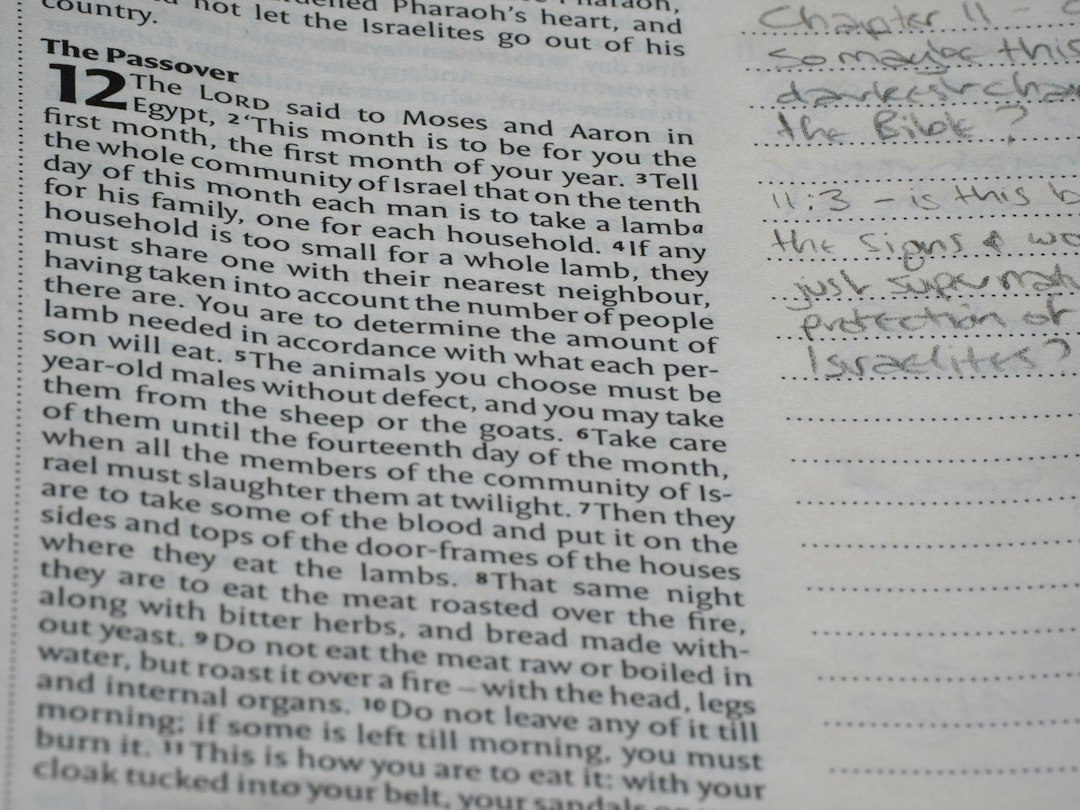 Pharaoh's heart, and
not let the Israelites go out of his
country.
The Passover
12 The LORD said to Moses and Aaron in
Egypt, 2 ‘This month is to be for you the
first month, the first month of your year. 3 Tell
the whole community of Israel that on the tenth
day of this month each man is to take a lamb a
for his family, one for each household. 4 If any
household is too small for a whole lamb, they
must share one with their nearest neighbour,
having taken into account the number of people
there are. You are to determine the amount of
lamb needed in accordance with what each per-
son will eat. 5 The animals you choose must be
year-old males without defect, and you may take
them from the sheep or the goats. 6 Take care
of them until the fourteenth day of the month,
when all the members of the community of Is-
rael must slaughter them at twilight. 7 Then they
are to take some of the blood and put it on the
sides and tops of the door-frames of the houses
where they eat the lambs. 8 That same night
they are to eat the meat roasted over the fire,
along with bitter herbs, and bread made with-
out yeast. 9 Do not eat the meat raw or boiled in
water, but roast it over a fire – with the head, legs
and internal organs. 10 Do not leave any of it till
morning; if some is left till morning, you must
burn it. 11 This is how you are to eat it: with your
cloak tucked into your belt, your sandals
Chapter 11 –
so maybe this
the Bible?
11:3 – is this
the signs &
just
protection of
Israelites?